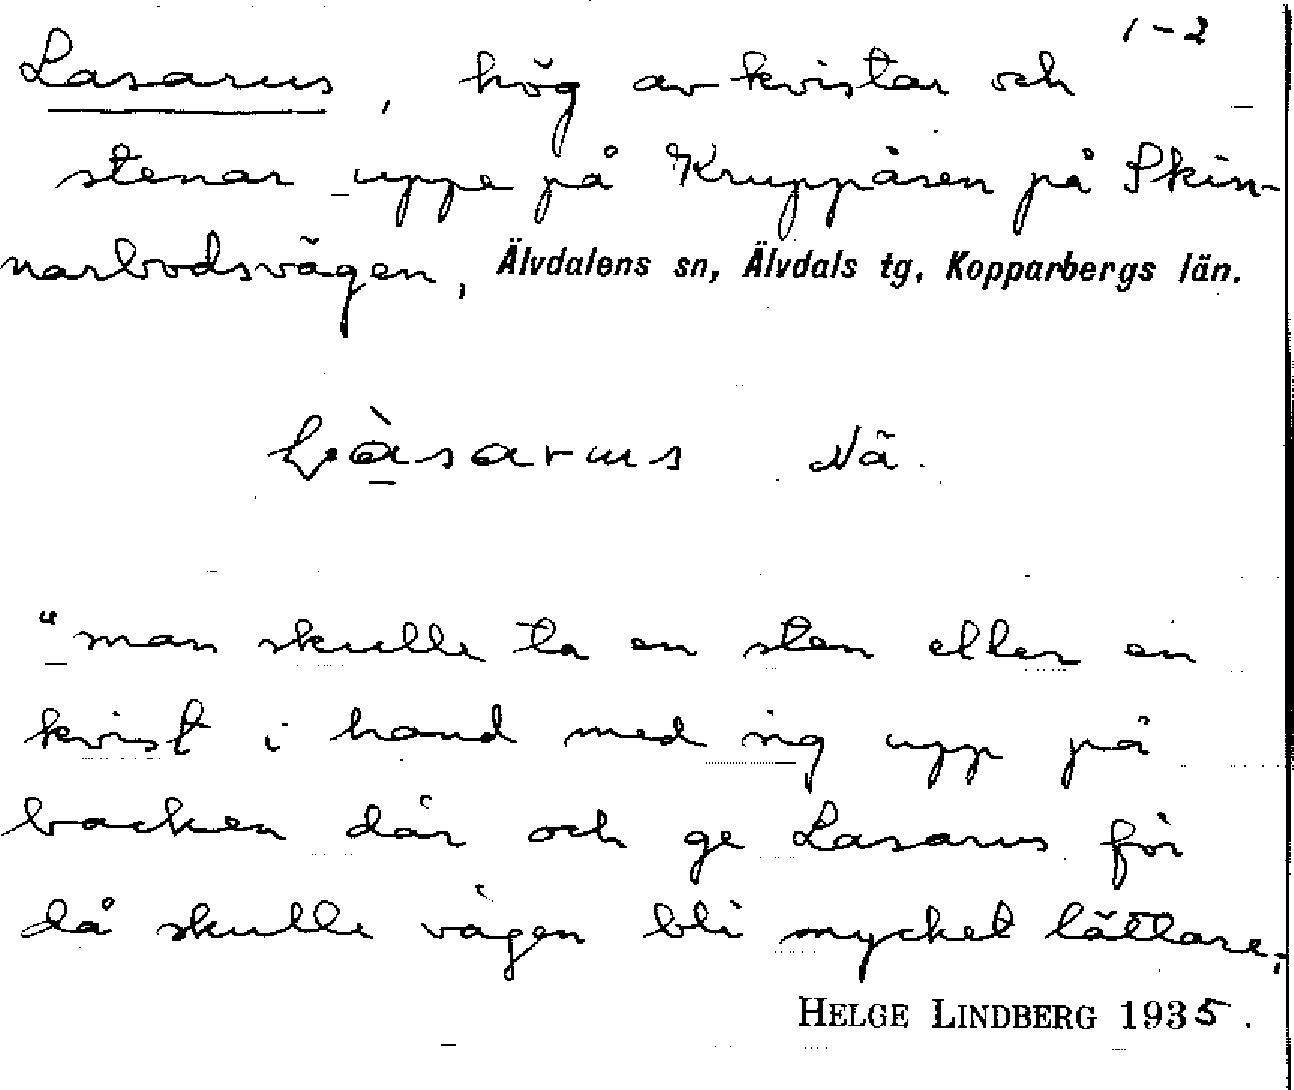 1-2
Lasarus, hög av kvistar och
stenar uppe på Kruppåsen på Skin-
narbodsvägen, Älvdalens sn, Älvdals tg, Kopparbergs län.
Nä.
"man skulle ta en sten eller en
kvist i hand med sig upp på
backen där och ge Lasarus för
då skulle vägen bli mycket lättare;
HELGE LINDBERG 1935.